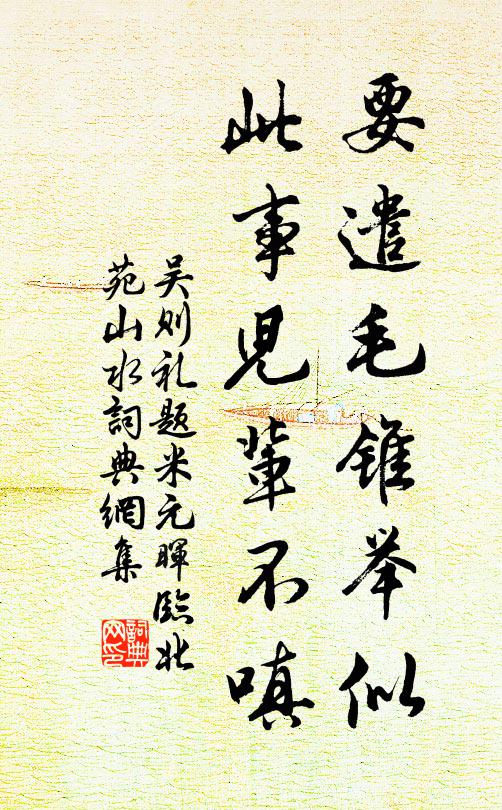 要遣毛锥举似
此事児輩不嗔
吴则礼题米元暉臨北
苑山水詞典網集
詞典
网印